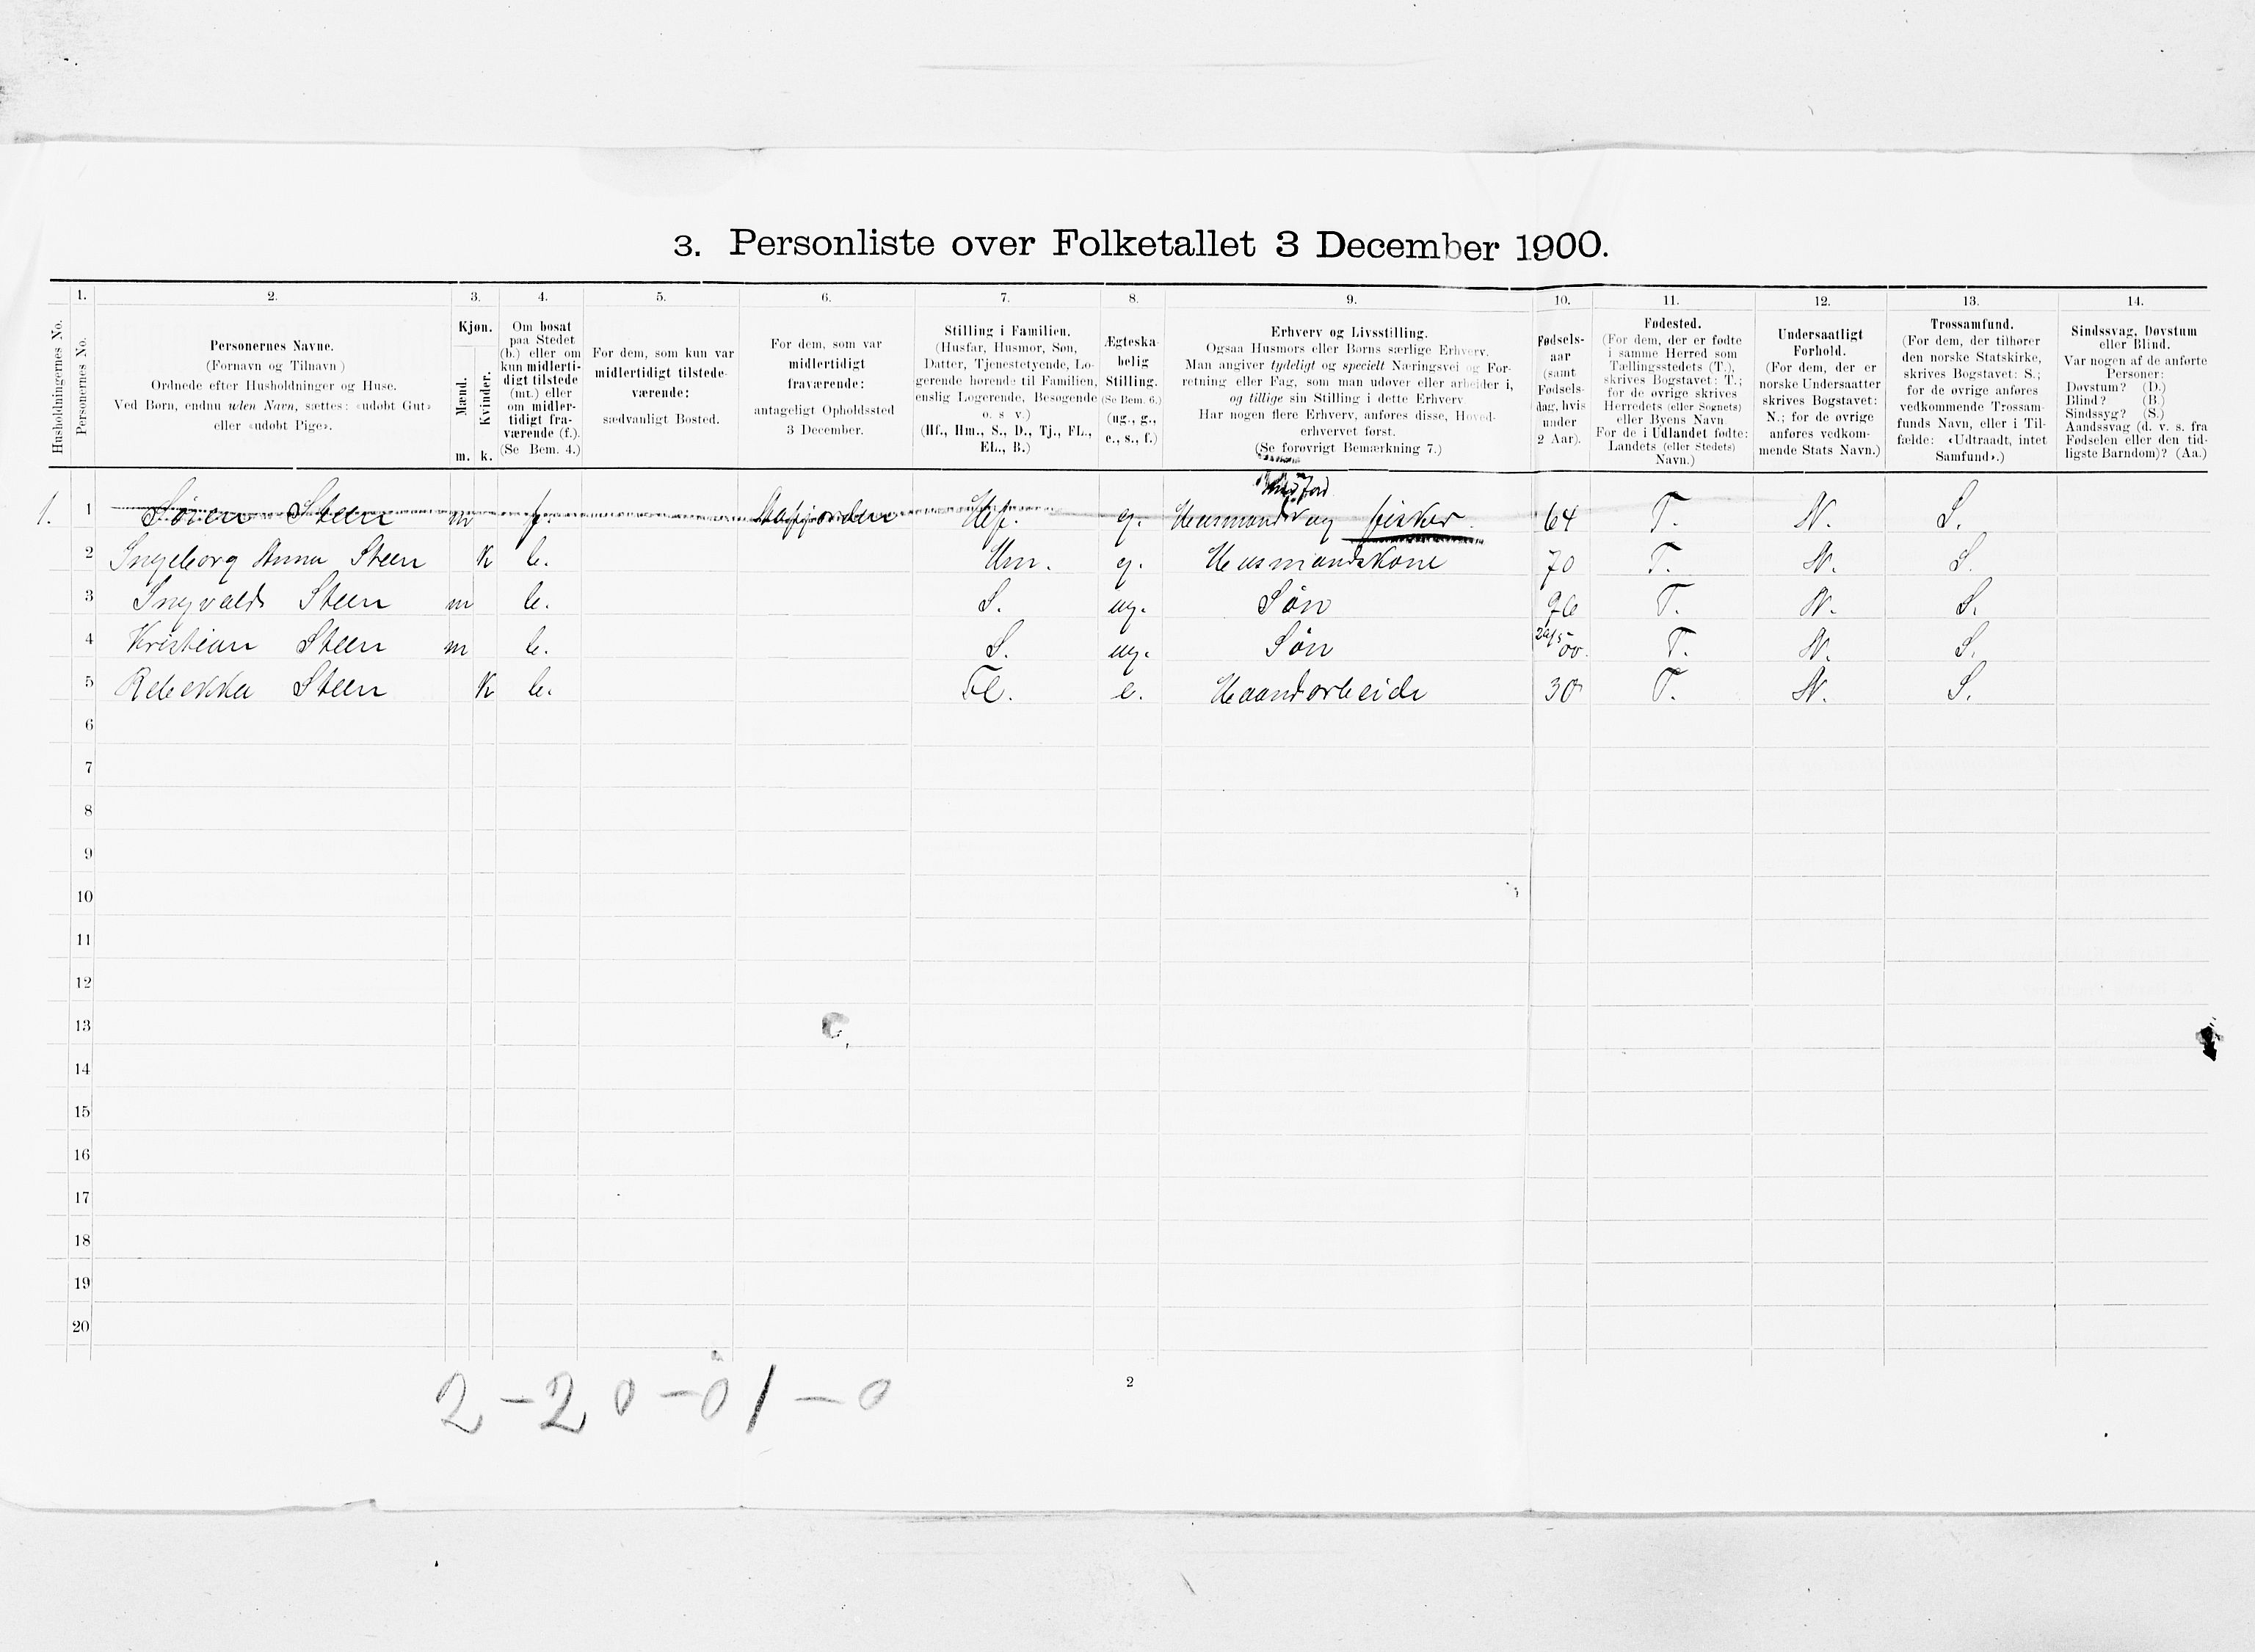 3. Personliste over Folketallet 3 December 1900.
1. 2. 3. 4. 5. 6. 7. 8. 9. 10. 11. 12. 13. 14.
Husholdningernes No.
Personernes No.
Personernes Navne.
(Fornavn og Tilnavn)
Ordnede efter Husholdninger og Huse.
Ved Børn, endnu uden Navn, sættes: «udøbt Gut»
eller «udøbt Pige».
Kjøn.
Mænd.
Kvinder.
m. k.
Om bosat
paa Stedet
(b.) eller om
kun midlerti-
digt tilstede
(mt.) eller
om midler-
tidigt fra-
værende (f.).
(Se Bem. 4.)
For dem, som kun var
midlertidigt tilstede-
værende:
sædvanligt Bosted.
For dem, som var
midlertidigt
fraværende:
antageligt Opholdssted
3 December.
Stilling i Familien.
(Husfar, Husmor, Søn,
Datter, Tjenestetyende, Lo-
gerende hørende til Familien,
enslig Logerende, Besøgende
o. s. v.)
(Hf., Hm., S., D., Tj., FL.,
EL., B.)
Ægteska-
belig
Stilling.
(Se Bem. 6.)
(ug., g.,
e., s., f.)
Erhverv og Livsstilling.
Ogsaa Husmors eller Børns særlige Erhverv.
Man angiver tydeligt og specielt Næringsvei og For-
retning eller Fag, som man udøver eller arbeider i,
og tillige sin Stilling i dette Erhverv.
Har nogen flere Erhverv, anføres disse, Hoved-
erhvervet først.
(Se forøvrigt Bemærkning 7.)
Fødsels-
aar
(samt
Fødsels-
dag, hvis
under
2 Aar).
Fødested.
(For dem, der er fødte
i samme Herred som
Tællingsstedets (T.),
skrives Bogstavet: T.;
for de øvrige skrives
Herredets (eller Sognets)
eller Byens Navn.
For de i Udlandet fødte:
Landets (eller Stedets)
Navn.)
Undersaatligt
Forhold.
(For dem, der er
norske Undersaatter
skrives Bogstavet:
N.; for de øvrige
anføres vedkom-
mende Stats Navn.)
Trossamfund.
(For dem, der tilhører
den norske Statskirke,
skrives Bogstavet: S.;
for de øvrige anføres
vedkommende Trossam-
funds Navn, eller i Til-
fælde: «Udtraadt, intet
Samfund».)
Sindssvag, Døvstum
eller Blind.
Var nogen af de anførte
Personer:
Døvstum? (D.)
Blind? (B.)
Sindssyg? (S.)
Aandssvag (d. v. s. fra
Fødselen eller den tid-
ligste Barndom)? (Aa.)
1. 1 Søren Steen m f. Hf. g. Husmand m jord og fisker 64 T. N. S.
2 Ingeborg Anna Steen k b. Hm. g. Husmandskone 70 T. N. S.
3 Ingvald Steen m b. S. ug. Søn T. N. S.
4 Kristian Steen m b. S. ug. Søn 00. T. N. S.
5 Rebekka Steen k b. FL. e. Haandarbeide 30 T. N. S.
6
7
8
9
10
11
12
13
14
15
16
17
18
19
20
2 - 2 0 - 0 1 - 0
2